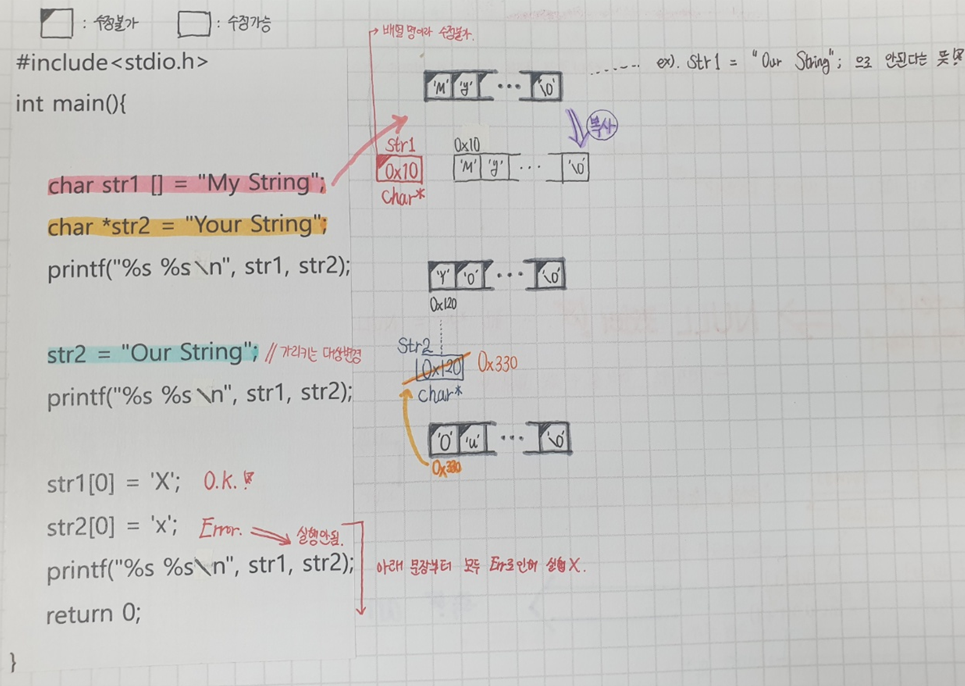 : 수정불가 : 수정가능
→ 배열 명이라 수정불가.
#include<stdio.h>
'M' 'y' ... '\0' ........ ex). Str1 = "Our String"; 으로 안된다는 뜻!
int main(){
복사
str1 0x10
0x10 'M' 'y' ... '\0'
char str1 [] = "My String";
char*
char *str2 = "Your String";
printf("%s %s\n", str1, str2);
'Y' 'o' ... '\0'
0x120
str2 = "Our String"; // 가리키는 대상변경
Str2
0x120 0x330
char*
printf("%s %s\n", str1, str2);
'O' 'u' ... '\0'
0x330
str1[0] = 'X'; O.K.!
str2[0] = 'x'; Error. 실행안됨.
printf("%s %s\n", str1, str2); 아래 문장부터 모두 Err로인해 실행 X.
return 0;
}